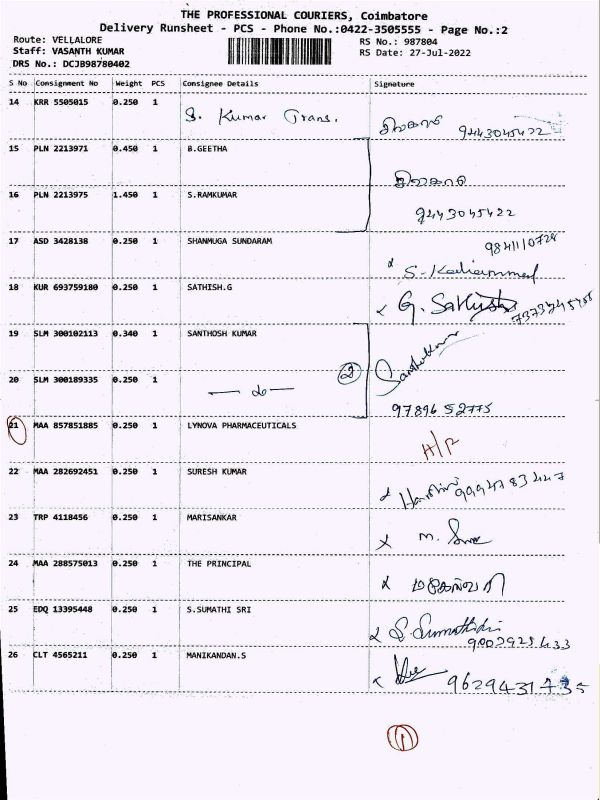 THE PROFESSIONAL COURIERS, Coimbatore
Delivery Runsheet - PCS - Phone No.:0422-3505555 - Page No.:2
Route: VELLALORE RS No.: 987804
Staff: VASANTH KUMAR RS Date: 27-Jul-2022
DRS No.: DCJB98780402
S No Consignment No Weight PCS Consignee Details Signature
14 KRR 5505015 0.250 1 S. Kumar Trans. 9443045422
15 PLN 2213971 0.450 1 B.GEETHA
16 PLN 2213975 1.450 1 S.RAMKUMAR 9443045422
17 ASD 3428138 0.250 1 SHANMUGA SUNDARAM
18 KUR 693759180 0.250 1 SATHISH.G G. Sathish
19 SLM 300102113 0.340 1 SANTHOSH KUMAR
20 SLM 300189335 0.250 1 2 9789652775
21 MAA 857851885 0.250 1 LYNOVA PHARMACEUTICALS
22 MAA 282692451 0.250 1 SURESH KUMAR
23 TRP 4118456 0.250 1 MARISANKAR
24 MAA 288575013 0.250 1 THE PRINCIPAL
25 EDQ 13395448 0.250 1 S.SUMATHI SRI
26 CLT 4565211 0.250 1 MANIKANDAN.S
1